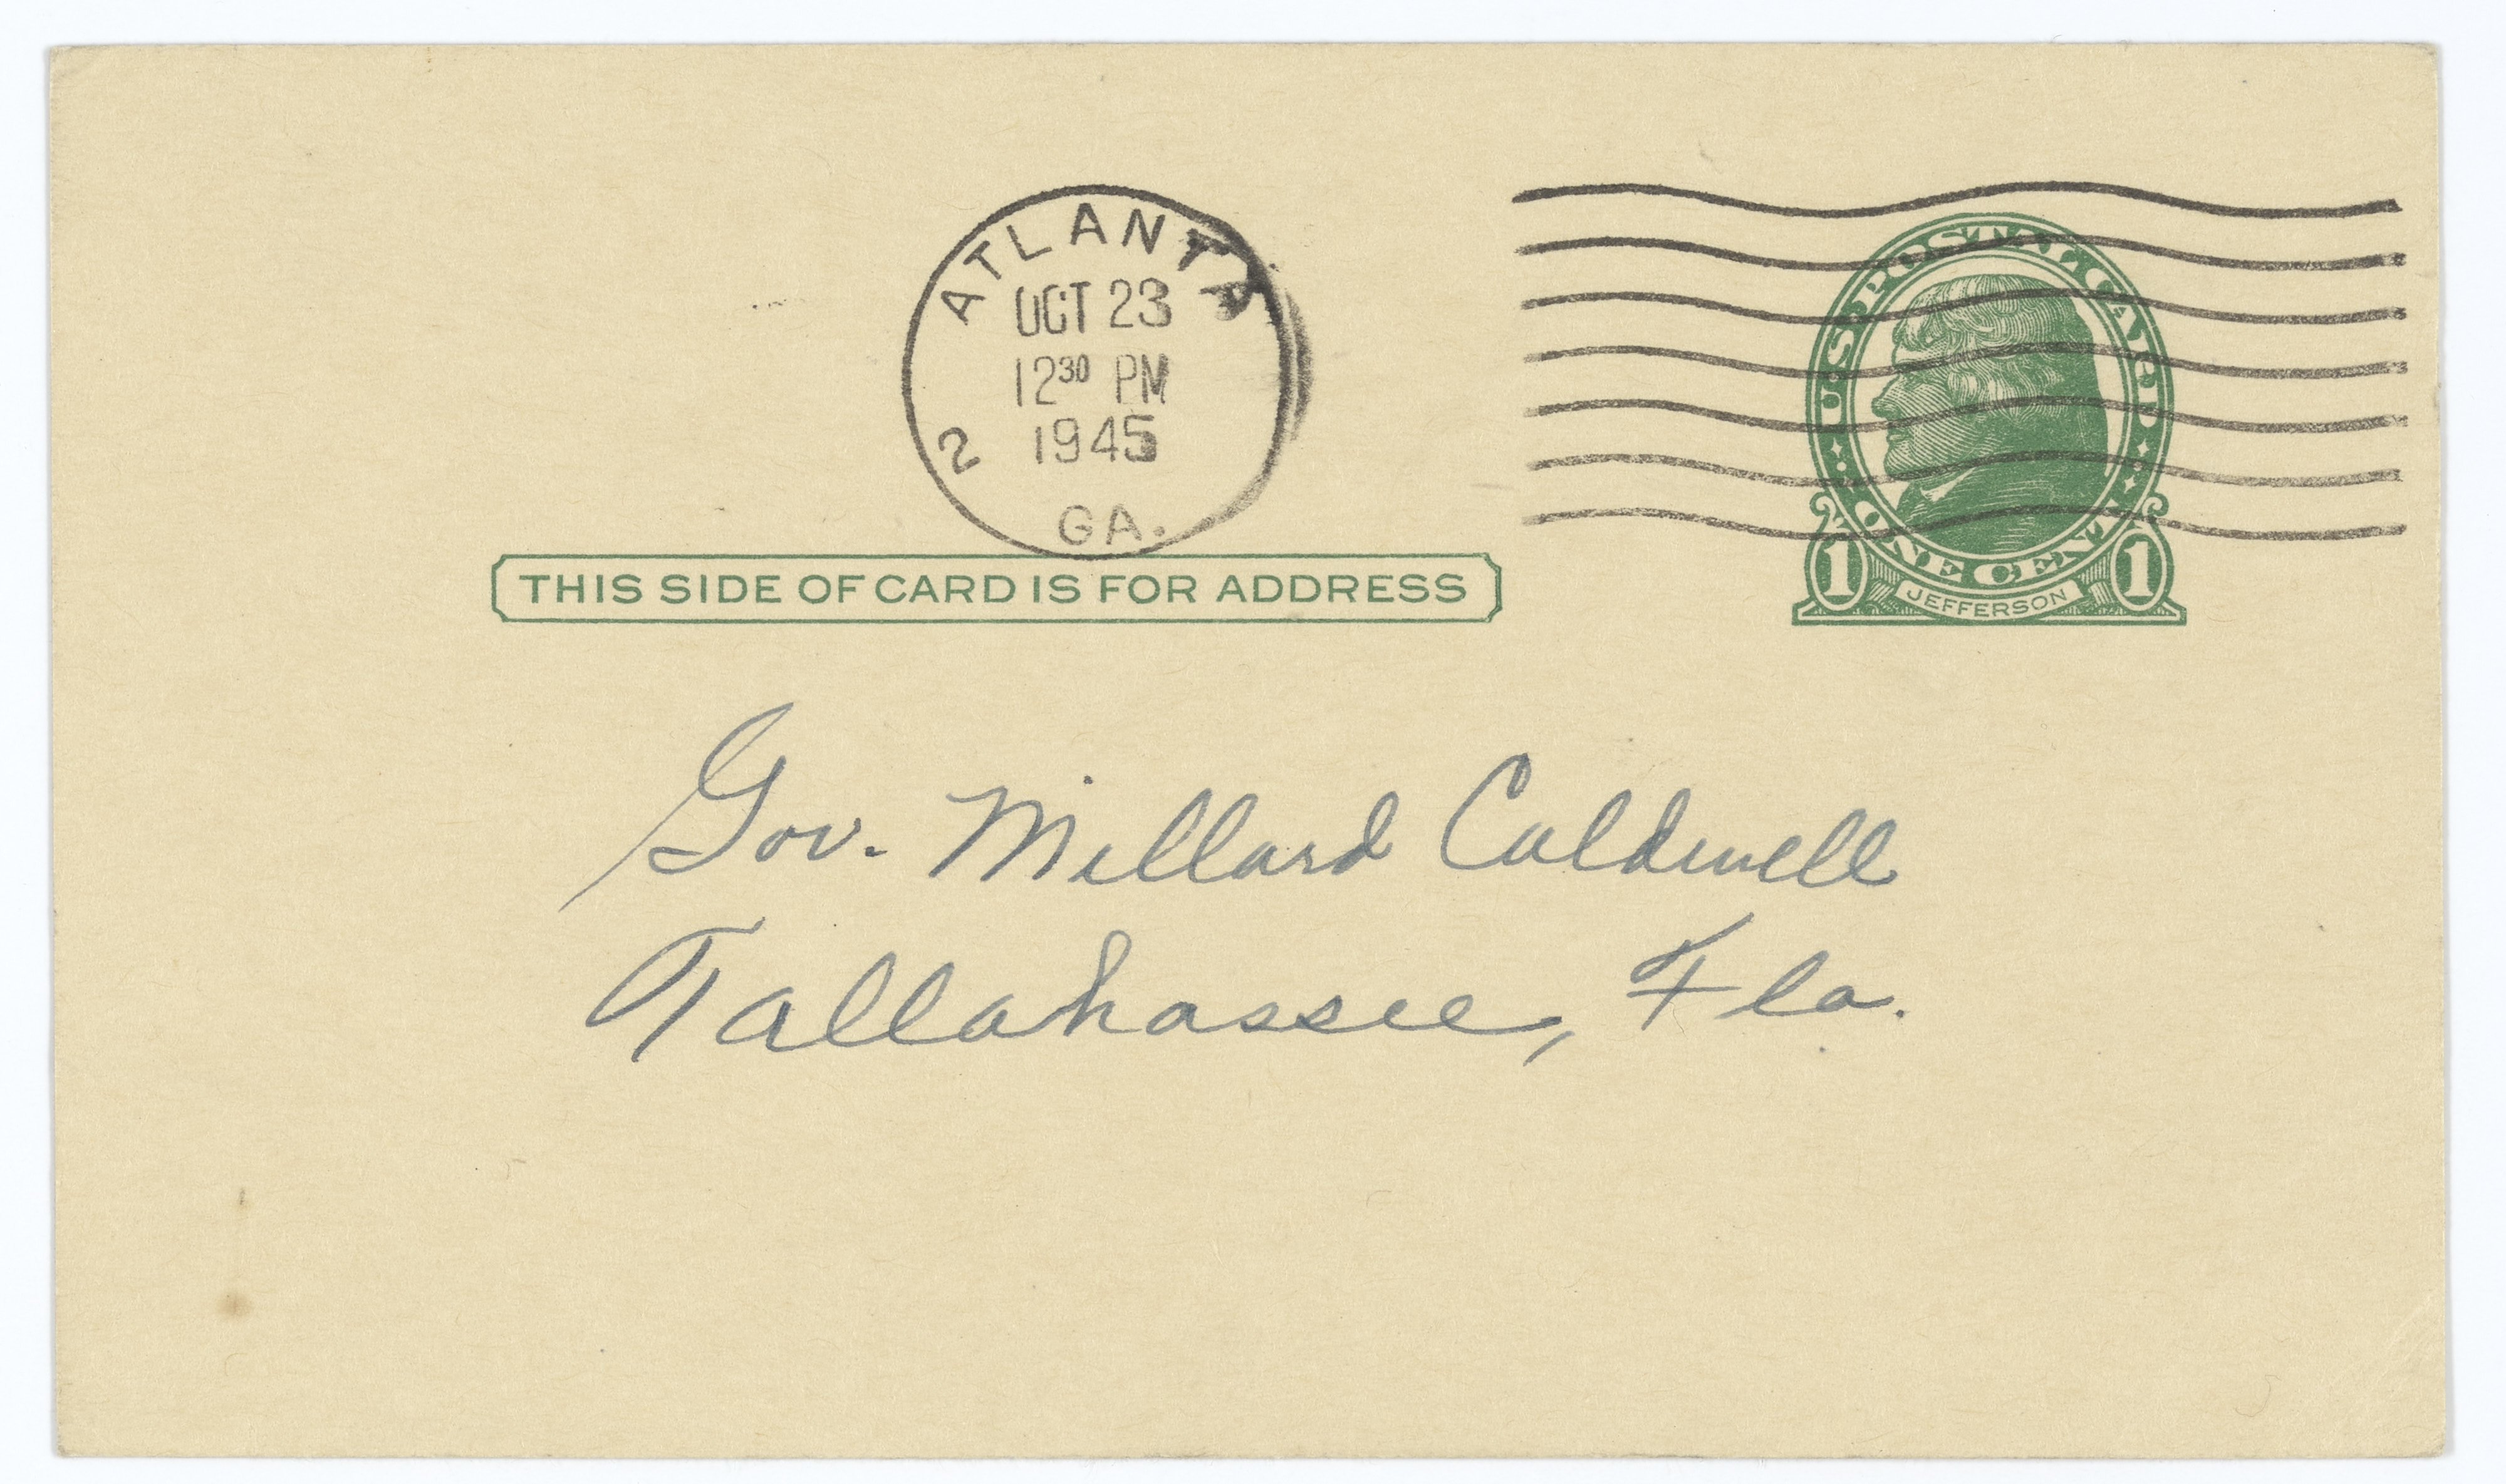 ATLANTA
OCT 23
12 30 PM
1945
2
GA.
U.S. POSTAL CARD
ONE CENT
1 JEFFERSON 1
THIS SIDE OF CARD IS FOR ADDRESS
Gov. Millard Caldwell
Tallahassee, Fla.